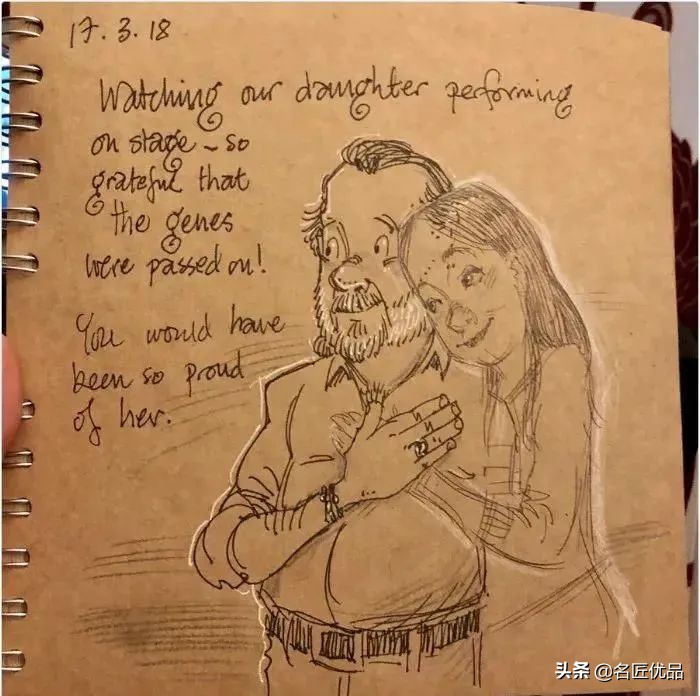 17.3.18
Watching our daughter performing
on stage ~ so
grateful that
the genes
were passed on!
You would have
been so proud
of her.
头条 @名匠优品